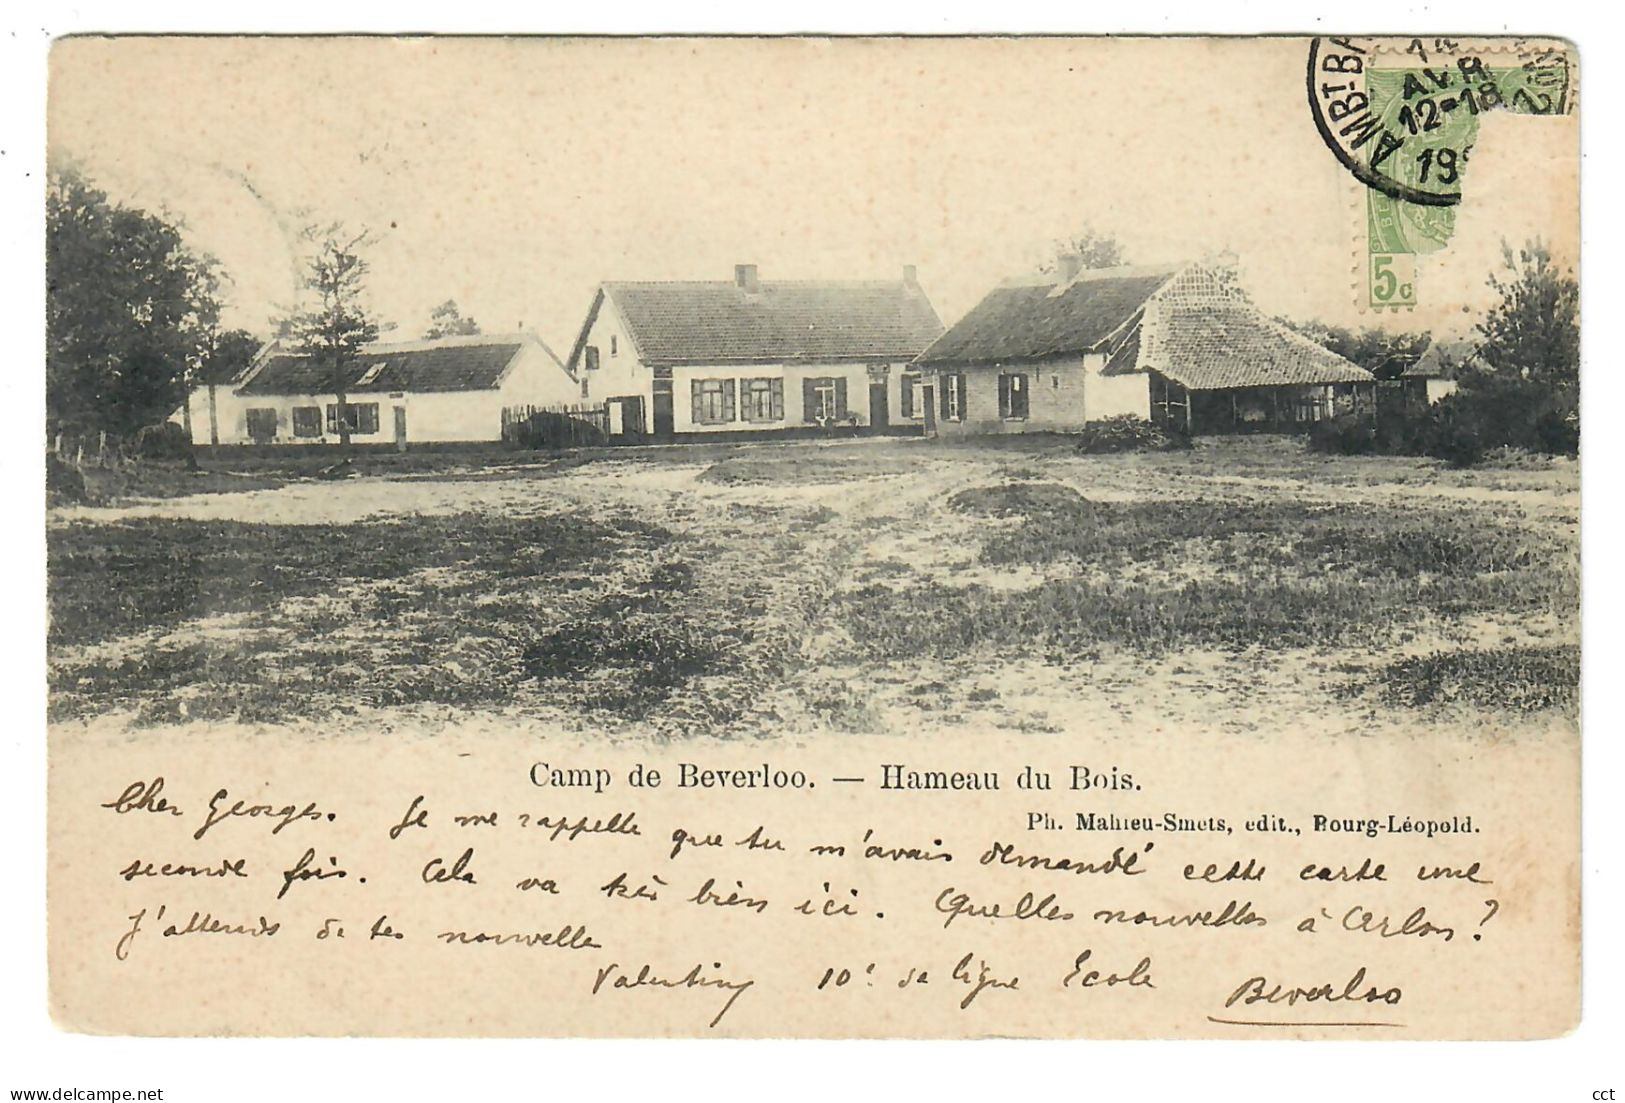 AMBT-BA
14
AVR
12-18
19
5c
Camp de Beverloo. — Hameau du Bois.
Ph. Mahieu-Smets, edit., Bourg-Léopold.
Cher Georges. Je me rappelle que tu m'avais demandé cette carte une
seconde fois. Cela va très bien ici. Quelles nouvelles à Arlon?
J'attends de tes nouvelle
Valentiny 10e de ligne Ecole Beverloo
delcampe.net
cct